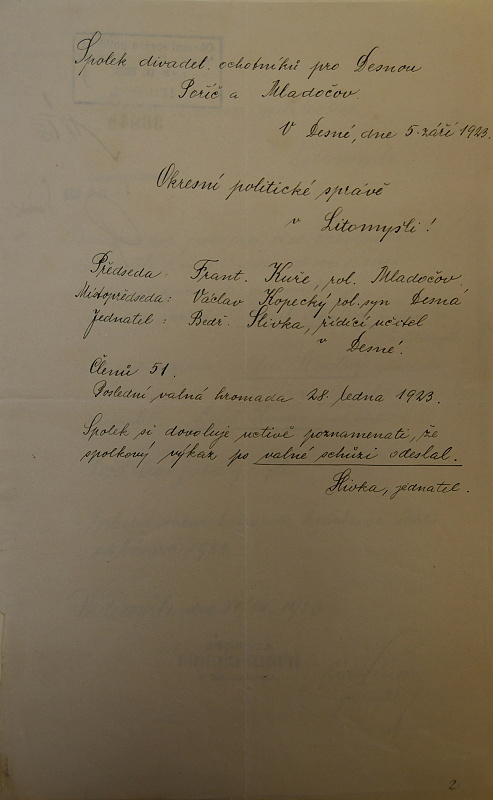 Spolek divadel. ochotníků pro Desnou
Poříč a Mladočov.
V Desné, dne 5. září 1923.
Okresní politické správě
v Litomyšli!
Předseda: Frant. Kuře, rol. Mladočov
Místopředseda: Václav Kopecký rol. syn Desná
Jednatel: Bedř. Slivka, řídící učitel
v Desné.
Členů 51.
Poslední valná hromada 28. ledna 1923.
Spolek si dovoluje uctivě poznamenati, že
spolkový výkaz po valné schůzi odeslal.
Slivka, jednatel.
2